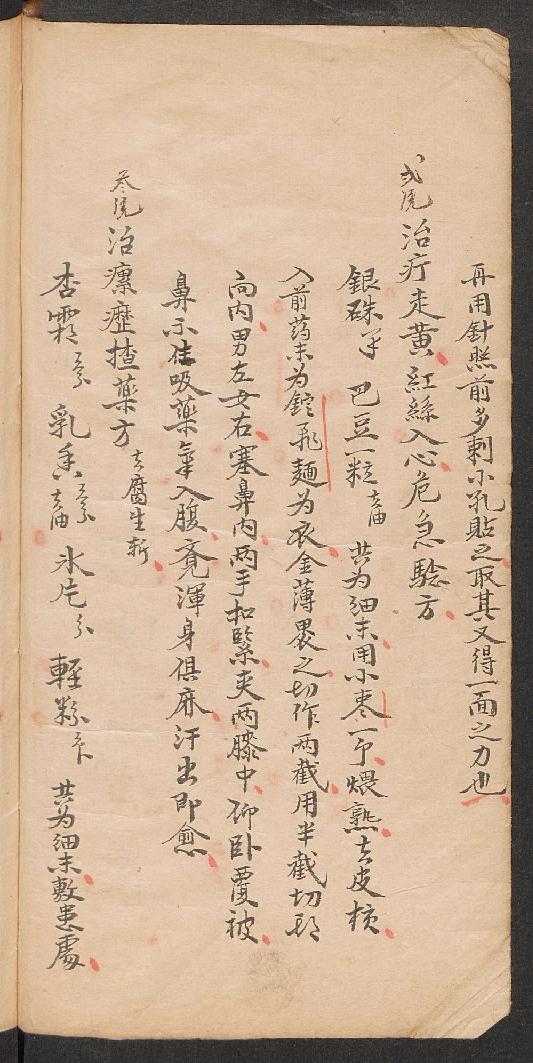 再用針照前多刺小孔貼之取其又得一面之力也
弍號 治疔走黃紅絲入心危急騐方
銀硃 巴豆一粒去油 共为細末用小枣一个煨熟去皮核
入前药末为錠飛麵为衣金薄裹之切作兩截用半截切
向内男左女右塞鼻内兩手扣緊夾兩膝中仰卧覆被
鼻不住吸藥氣入腹竟渾身俱麻汗出即愈
叁號 治瘰癧揸藥方 去腐生新
杏霜 乳香 去油 氷片 輕粉 共为細末敷患處